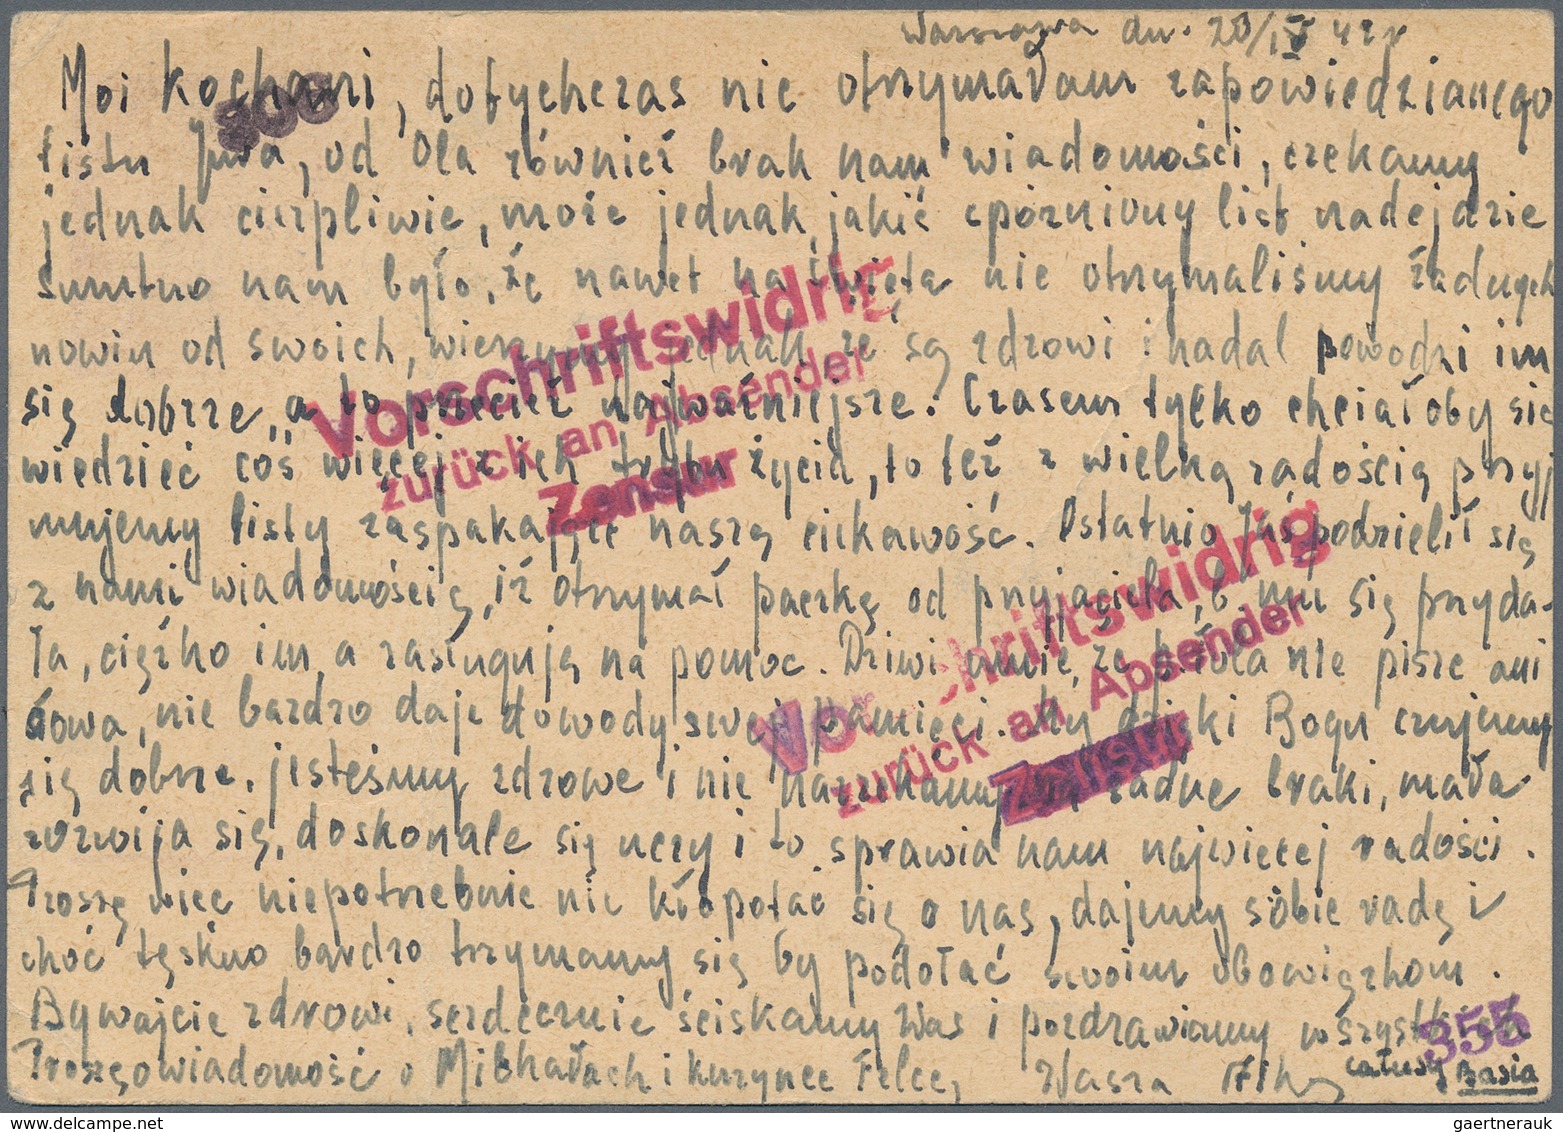 Warszawa dn. 20/IV 42 r
Moi kochani, dotychczas nie otrzymałam zapowiedzianego
900
listu Jura, od Ola również brak nam wiadomości, czekamy
jednak cierpliwie, może jednak jakiś spóźniony list nadejdzie
Smutno nam było, że nawet na święta nie otrzymaliśmy żadnych
nowin od swoich, wierzymy jednak że są zdrowi i nadal powodzi im
się dobrze, a to przecież najważniejsze. Czasem tylko chciałoby się
wiedzieć coś więcej z ich trybu życia, to też z wielką radością przyj
mujemy listy zaspakające naszą ciekawość. Ostatnio Jaś podzielił się
z nami wiadomością, iż otrzymał paczkę od przyjaciela, b. mu się przyda-
ła, ciężko im a zasługują na pomoc. Dziwi mnie, że nie pisze ani
słowa, nie bardzo daje dowody swej pamięci. My dzięki Bogu czujemy
się dobrze, jesteśmy zdrowe i nie narzekamy na żadne braki, mała
rozwija się, doskonale się uczy i to sprawia nam najwięcej radości.
Proszę więc niepotrzebnie nie kłopotać się o nas, dajemy sobie radę i
choć tęskno bardzo trzymamy się by podołać swoim obowiązkom.
Bywajcie zdrowi, serdecznie ściskamy Was i pozdrawiamy wszystkich
355
Proszę o wiadomość o Michałach i kuzynce Felce, Wasza
całusy Basia
Vorschriftswidrig
zurück an Absender
Zensur
Vorschriftswidrig
zurück an Absender
Zensur
gaertnerauk @ delcampe.net